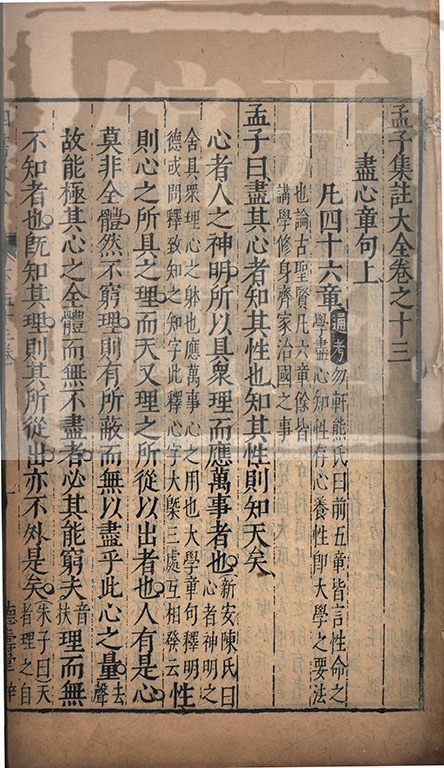 孟子集註大全卷之十三
盡心章句上
凡四十六章 通考 勿軒熊氏曰前五章皆言性命之
學盡心知性存心養性即大學之要法
也論古聖賢凡六章餘皆
講學修身齊家治國之事
孟子曰盡其心者知其性也知其性則知天矣
心者人之神明所以具衆理而應萬事者也 新安陳氏曰
心者神明之
舍具衆理心之體也應萬事心之用也大學章句釋明
德或問釋致知之知字此釋心字大槩三處互相發云 性
則心之所具之理而天又理之所從以出者也人有是心
莫非全體然不窮理則有所蔽而無以盡乎此心之量 去
聲
故能極其心之全體而無不盡者必其能窮夫 音
扶 理而無
不知者也旣知其理則其所從出亦不外是矣 朱子曰天
者理之自